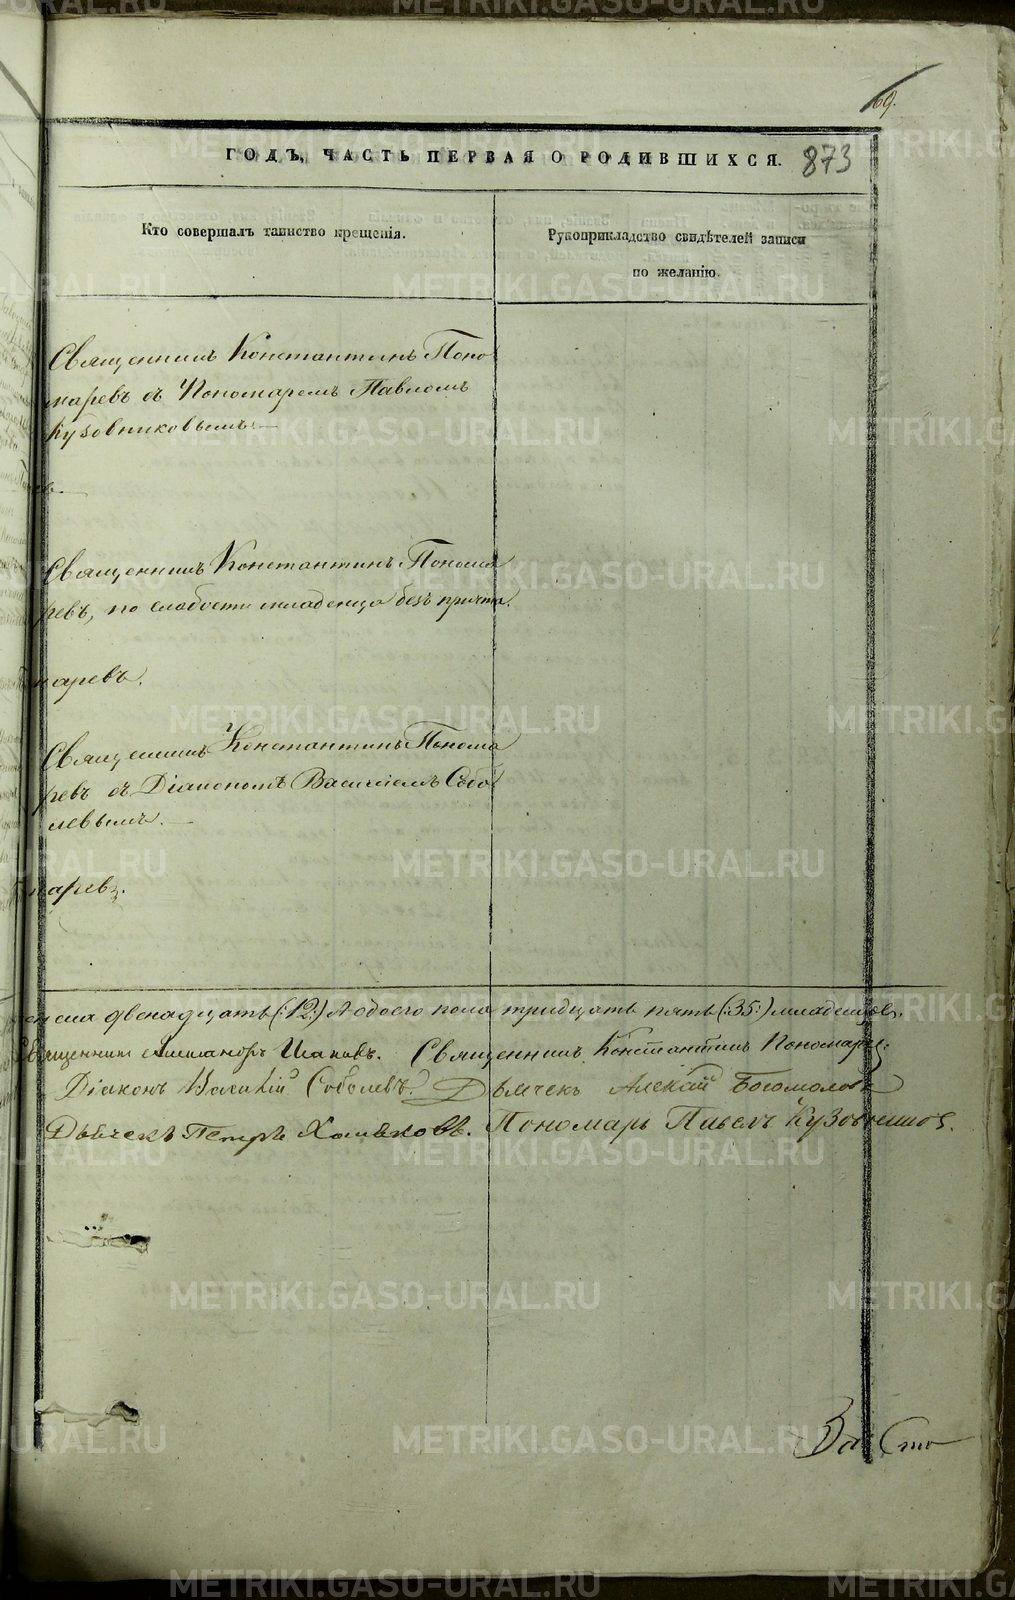 69.
ГОДЪ, ЧАСТЬ ПЕРВАЯ О РОДИВШИХСЯ. 873
Кто совершалъ таинство крещенія.
Рукоприкладство свидѣтелей записи
по желанію.
Священникъ Константинъ Поно
маревъ съ Пономаремъ Павломъ
Кузовниковымъ.
Священникъ Константинъ Понома
ревъ, по слабости младенца безъ причта.
маревъ.
Священникъ Константинъ Понома
ревъ съ Діакономъ Василіемъ Собо
левымъ.
маревъ.
двенадцать (:12:) А обоего пола тридцать пять (:35:) младенцовъ.
Священникъ Священникъ Константинъ Пономаревъ.
Діаконъ Василій Соболевъ. Дьячекъ Алексѣй Богомоловъ
Дьячекъ Петръ Хомяковъ. Пономарь Павелъ Кузовниковъ.
METRIKI.GASO-URAL.RU